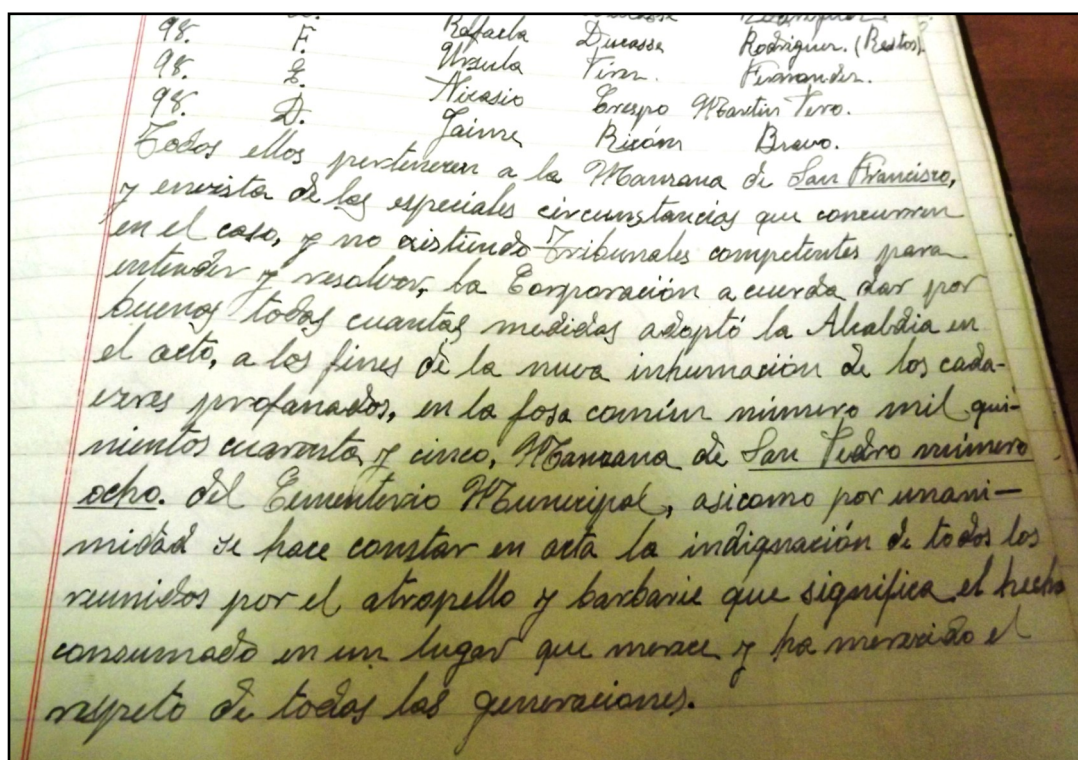 98. F. Rafaela Ducasse Rodriguez. (Restos).
98. E. Ursula Fernandez.
98. D. Nicasio Crespo Martin Vero.
Jaime Ricón Bravo.
Todos ellos pertenecen a la Manzana de San Francisco,
y envista de las especiales circunstancias que concurren
en el caso, y no existiendo Tribunales competentes para
entender y resolver, la Corporación acuerda dar por
buenas todas cuantas medidas adoptó la Alcaldia en
el acto, a los fines de la nueva inhumación de los cada-
veres profanados, en la fosa común número mil qui-
nientos cuarenta y cinco, Manzana de San Pedro número
ocho. del Cementerio Municipal, asicomo por unani-
midad se hace constar en acta la indignación de todos los
reunidos por el atropello y barbarie que significa el hecho
consumado en un lugar que merece y ha merecido el
respeto de todas las generaciones.